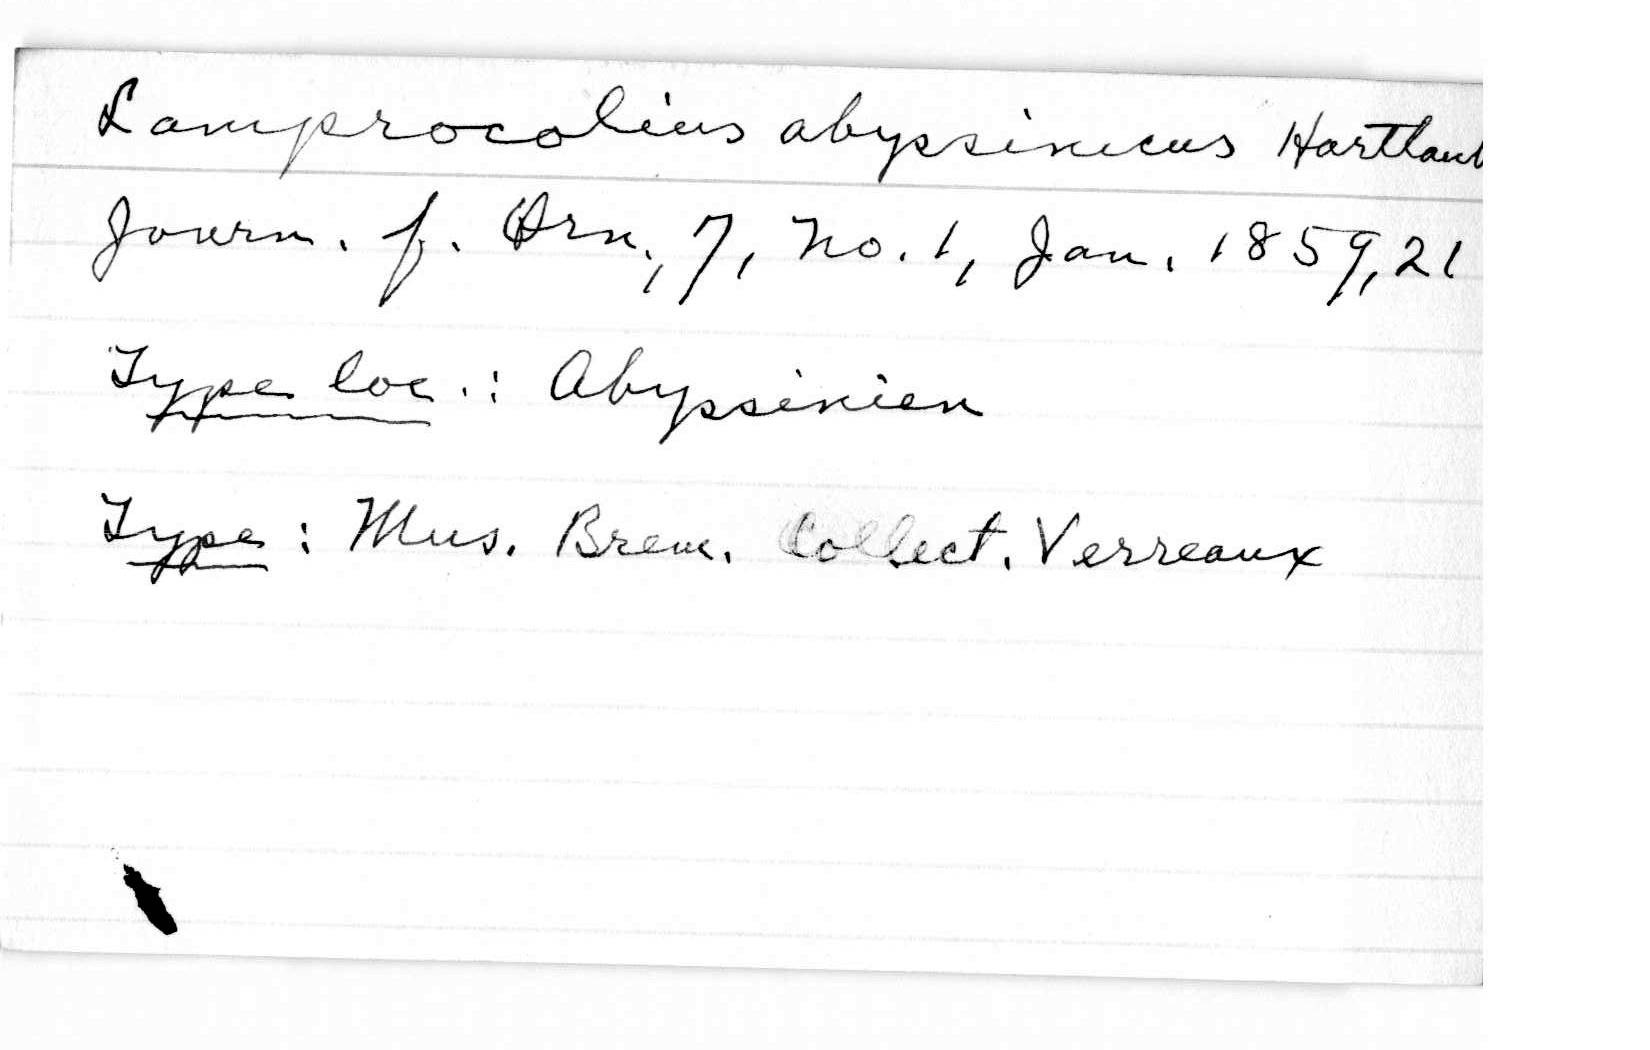 Lamprocolius abyssinicus Hartlaub
Journ. f. Orn., 7, No. 1, Jan. 1859, 21
Type loc.: Abyssinien
Type: Mus. Brem. Collect. Verreaux